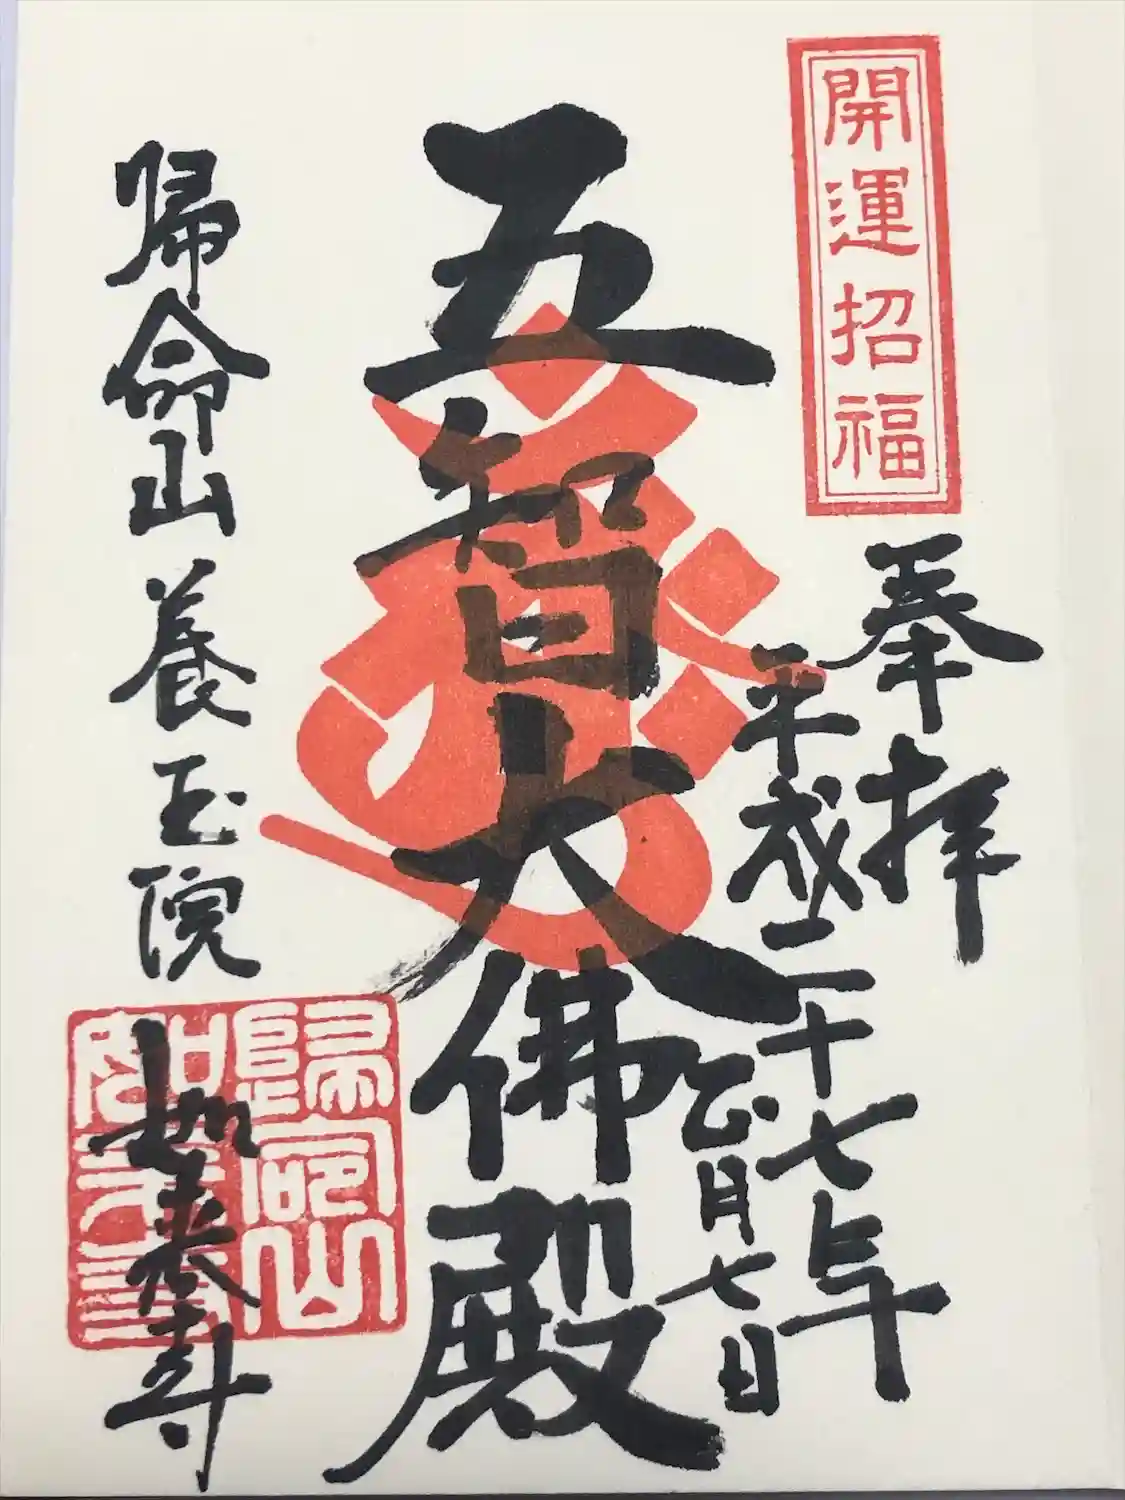 開運招福
奉拝
平成二十七年
七月七日
五智大佛殿
帰命山養玉院
如来寺
歸命山如来寺